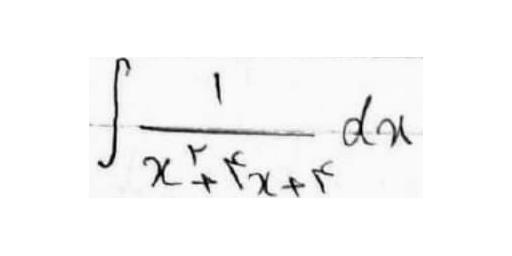 ∫ ۱/(x^۲+۴x+۴) dx